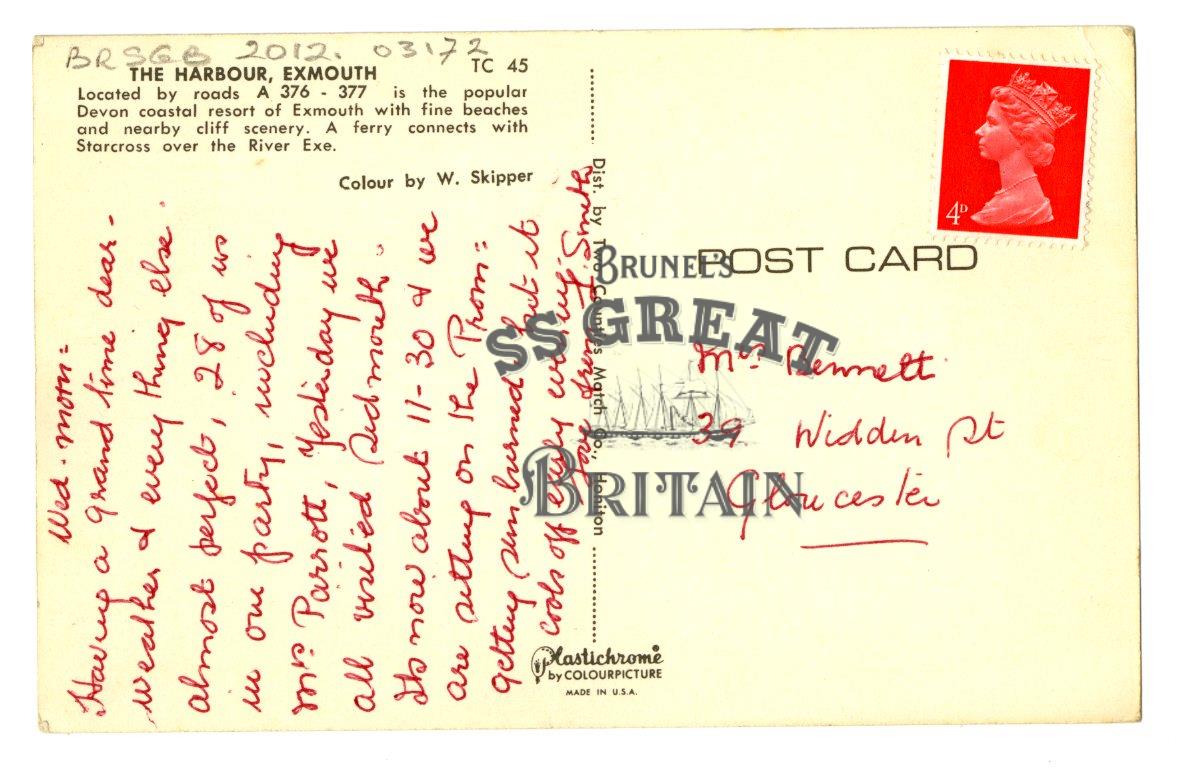 BRSGB 2012. 03172
THE HARBOUR, EXMOUTH
TC 45
Located by roads A 376 - 377 is the popular
Devon coastal resort of Exmouth with fine beaches
and nearby cliff scenery. A ferry connects with
Starcross over the River Exe.
Colour by W. Skipper
Wed. morn=
Having a grand time dear-
weather & every thing else
almost perfect, 28 of us
in our party, including
Mrs Parrott, Yesterday we
all visited Sidmouth.
Its now about 11-30 & we
are sitting on the Prom=
getting sun burned but it
cools off early evening.
Smith
Dist. by Two Counties Match Co., Honiton
Plastichrome®
by COLOURPICTURE
MADE IN U.S.A.
4D
POST CARD
BRUNEL'S
SS GREAT
BRITAIN
Mrs Bennett
39 Widden St
Gloucester